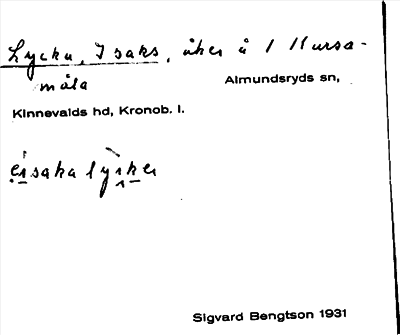 Lycka, Isaks, åker å 1 Hursa-
måla Almundsryds sn,
Kinnevalds hd, Kronob. l.
eisaka lyckeı
Sigvard Bengtson 1931